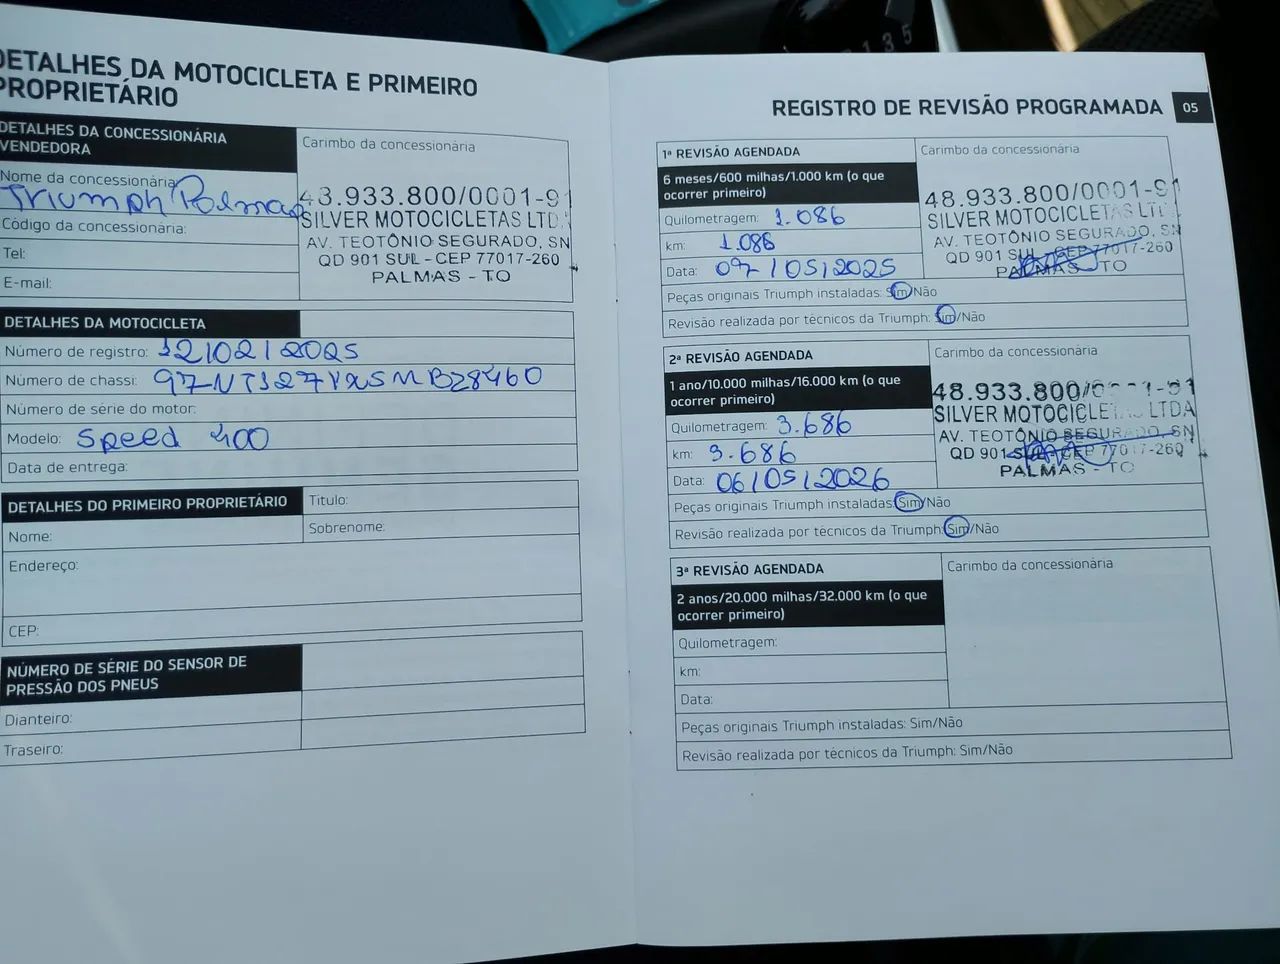 DETALHES DA MOTOCICLETA E PRIMEIRO
PROPRIETÁRIO
DETALHES DA CONCESSIONÁRIA
VENDEDORA
Carimbo da concessionária
Nome da concessionária
Triumph Palmas
48.933.800/0001-91
SILVER MOTOCICLETAS LTDA
AV. TEOTÔNIO SEGURADO, SN
QD 901 SUL - CEP 77017-260
PALMAS - TO
Código da concessionária:
Tel:
E-mail:
DETALHES DA MOTOCICLETA
Número de registro: 12/02/2025
Número de chassi:
Número de série do motor:
Modelo: Speed 400
Data de entrega:
DETALHES DO PRIMEIRO PROPRIETÁRIO
Titulo:
Nome:
Sobrenome:
Endereço:
CEP:
NÚMERO DE SÉRIE DO SENSOR DE
PRESSÃO DOS PNEUS
Dianteiro:
Traseiro:
REGISTRO DE REVISÃO PROGRAMADA 05
1ª REVISÃO AGENDADA
Carimbo da concessionária
6 meses/600 milhas/1.000 km (o que
ocorrer primeiro)
48.933.800/0001-91
SILVER MOTOCICLETAS LTD
AV. TEOTÔNIO SEGURADO, SN
QD 901 SUL - CEP 77017-260
PALMAS - TO
Quilometragem: 1.086
km: 1.086
Data: 07/05/2025
Peças originais Triumph instaladas: Sim/Não
Revisão realizada por técnicos da Triumph: Sim/Não
2ª REVISÃO AGENDADA
Carimbo da concessionária
1 ano/10.000 milhas/16.000 km (o que
ocorrer primeiro)
48.933.800/0001-91
SILVER MOTOCICLETAS LTDA
AV. TEOTÔNIO SEGURADO, SN
QD 901 SUL - CEP 77017-260
PALMAS - TO
Quilometragem: 3.686
km: 3.686
Data: 06/05/2026
Peças originais Triumph instaladas: Sim/Não
Revisão realizada por técnicos da Triumph: Sim/Não
3ª REVISÃO AGENDADA
Carimbo da concessionária
2 anos/20.000 milhas/32.000 km (o que
ocorrer primeiro)
Quilometragem:
km:
Data:
Peças originais Triumph instaladas: Sim/Não
Revisão realizada por técnicos da Triumph: Sim/Não